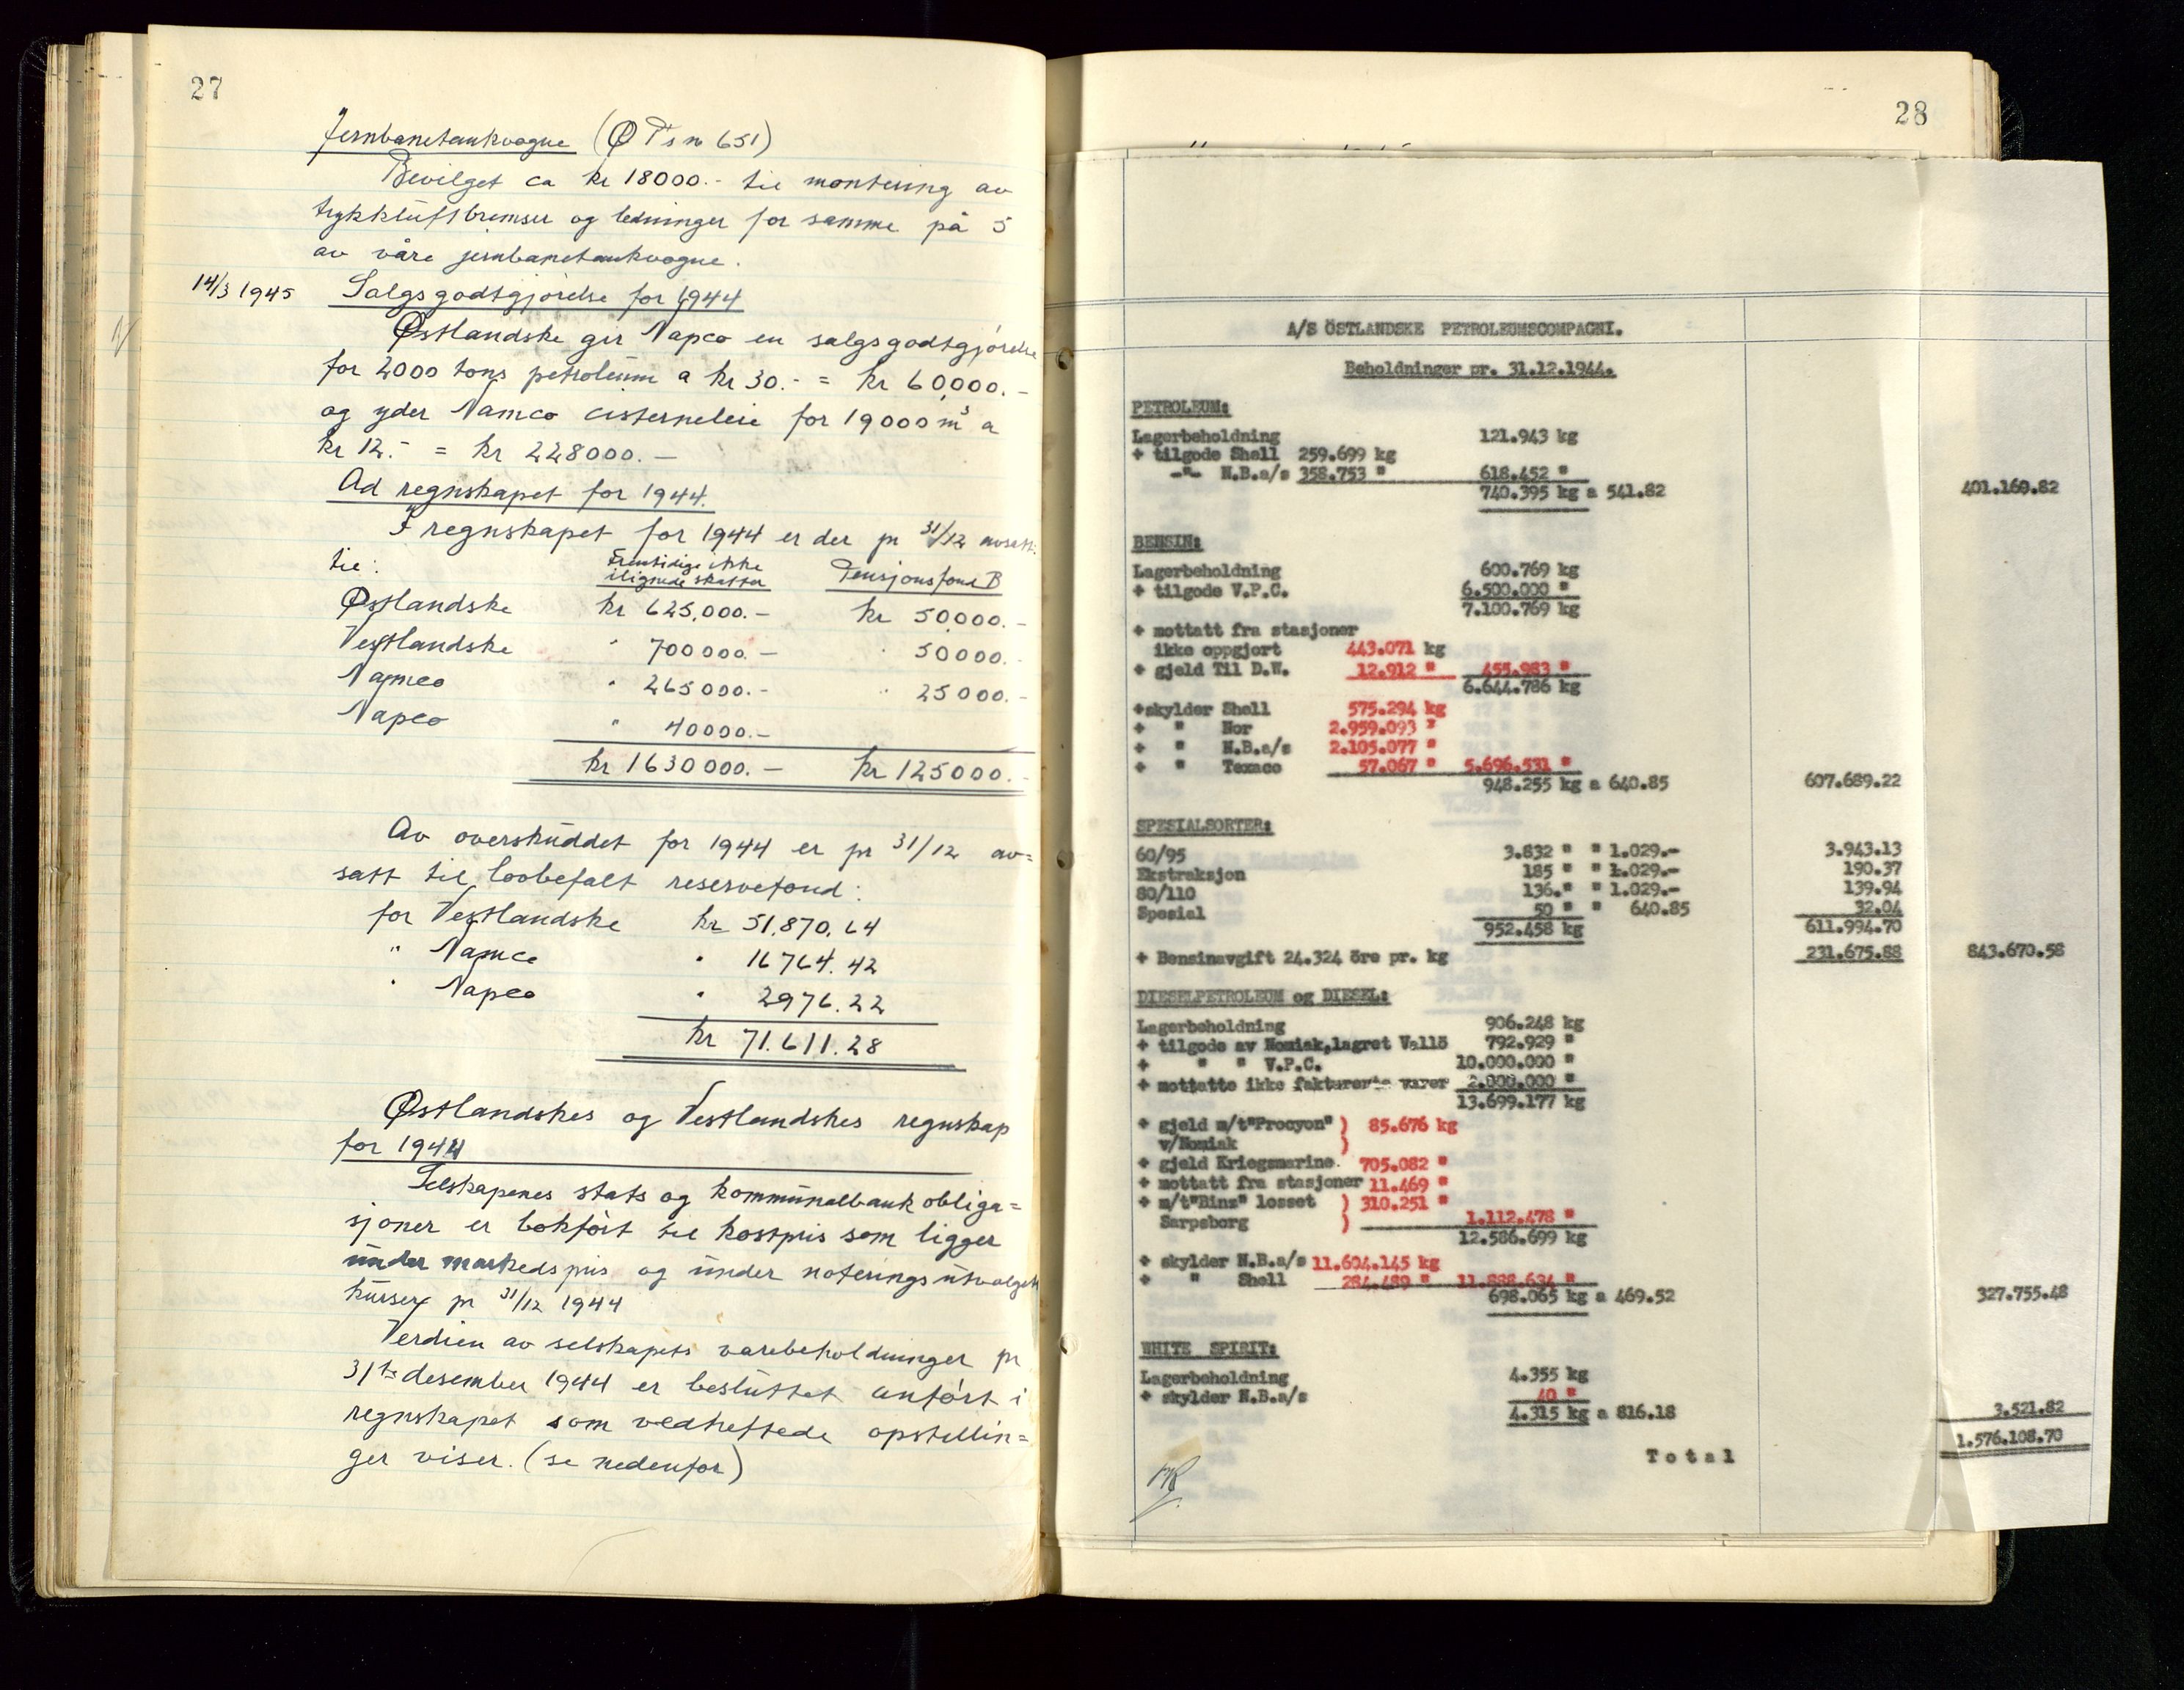 27
Jernbanetankvogne (ØPs nr 651)
Bevilget ca kr 18000.- til montering av
trykkluftbremser og ledninger for samme på 5
av våre jernbanetankvogne.
14/3 1945 Salgsgodtgjørelse for 1944
Østlandske gir Napco en salgsgodtgjørelse
for 2000 tons petroleum a kr 30.- = kr 60,000.-
og yder Namco cisterneleie for 19000 m³ a
kr 12.- = kr 228000.-
Ad regnskapet for 1944.
I regnskapet for 1944 er der pr 31/12 avsatt
til: Fremtidige ikke ilignede skatter Pensjonsfond B
Østlandske kr 625,000.- kr 50,000.-
Vestlandske " 700000.- " 50000.-
Namco " 265000.- " 25000.-
Napco " 40000.-
kr 1630000.- kr 125000.-
Av overskuddet for 1944 er pr 31/12 av=
satt til lovbefalt reservefond:
for Vestlandske kr 51.870.64
" Namco " 16764.42
" Napco " 2976.22
kr 71.611.28
Østlandskes og Vestlandskes regnskap
for 1944
Selskapenes stats og kommunalbank obliga=
sjoner er bokført til kostpris som ligger
under markedspris og under noteringsutvalgets
kurser pr 31/12 1944
Verdien av selskapets varebeholdninger pr
31te desember 1944 er besluttet anført i
regnskapet som vedheftede opstillin=
ger viser. (se nedenfor)
28
A/S ÖSTLANDSKE PETROLEUMSCOMPAGNI.
Beholdninger pr. 31.12.1944.
PETROLEUM:
Lagerbeholdning 121.943 kg
+ tilgode Shell 259.699 kg
-"- N.B.a/s 358.753 " 618.452 "
740.395 kg a 541.82 401.160.82
BENSIN:
Lagerbeholdning 600.769 kg
+ tilgode V.P.C. 6.500.000 "
7.100.769 kg
+ mottatt fra stasjoner
ikke oppgjort 443.071 kg
+ gjeld Til D.W. 12.912 " 455.983 "
6.644.786 kg
+skylder Shell 575.294 kg
+ " Nor 2.959.093 "
+ " N.B.a/s 2.105.077 "
+ " Texaco 57.067 " 5.696.531 "
948.255 kg a 640.85 607.689.22
SPESIALSORTER:
60/95 3.832 " " 1.029.- 3.943.13
Ekstraksjon 185 " " 1.029.- 190.37
80/110 136." " 1.029.- 139.94
Spesial 50 " " 640.85 32.04
952.458 kg 611.994.70
+ Bensinavgift 24.324 öre pr. kg 231.675.88 843.670.58
DIESELPETROLEUM og DIESEL:
Lagerbeholdning 906.248 kg
+ tilgode av Nomiak,lagret Vallö 792.929 "
+ " " V.P.C. 10.000.000 "
+ mottatte ikke fakturerte varer 2.000.000 "
13.699.177 kg
+ gjeld m/t"Procyon" ) 85.676 kg
v/Nomiak )
+ gjeld Kriegsmarine. 705.082 "
+ mottatt fra stasjoner 11.469 "
+ m/t"Binz" losset ) 310.251 "
Sarpsborg ) 1.112.478 "
12.586.699 kg
+ skylder N.B.a/s 11.604.145 kg
+ " Shell 284.489 " 11.888.634 "
698.065 kg a 469.52 327.755.48
WHITE SPIRIT:
Lagerbeholdning 4.355 kg
+ skylder N.B.a/s 40 "
4.315 kg a 816.18 3.521.82
Total 1.576.108.70